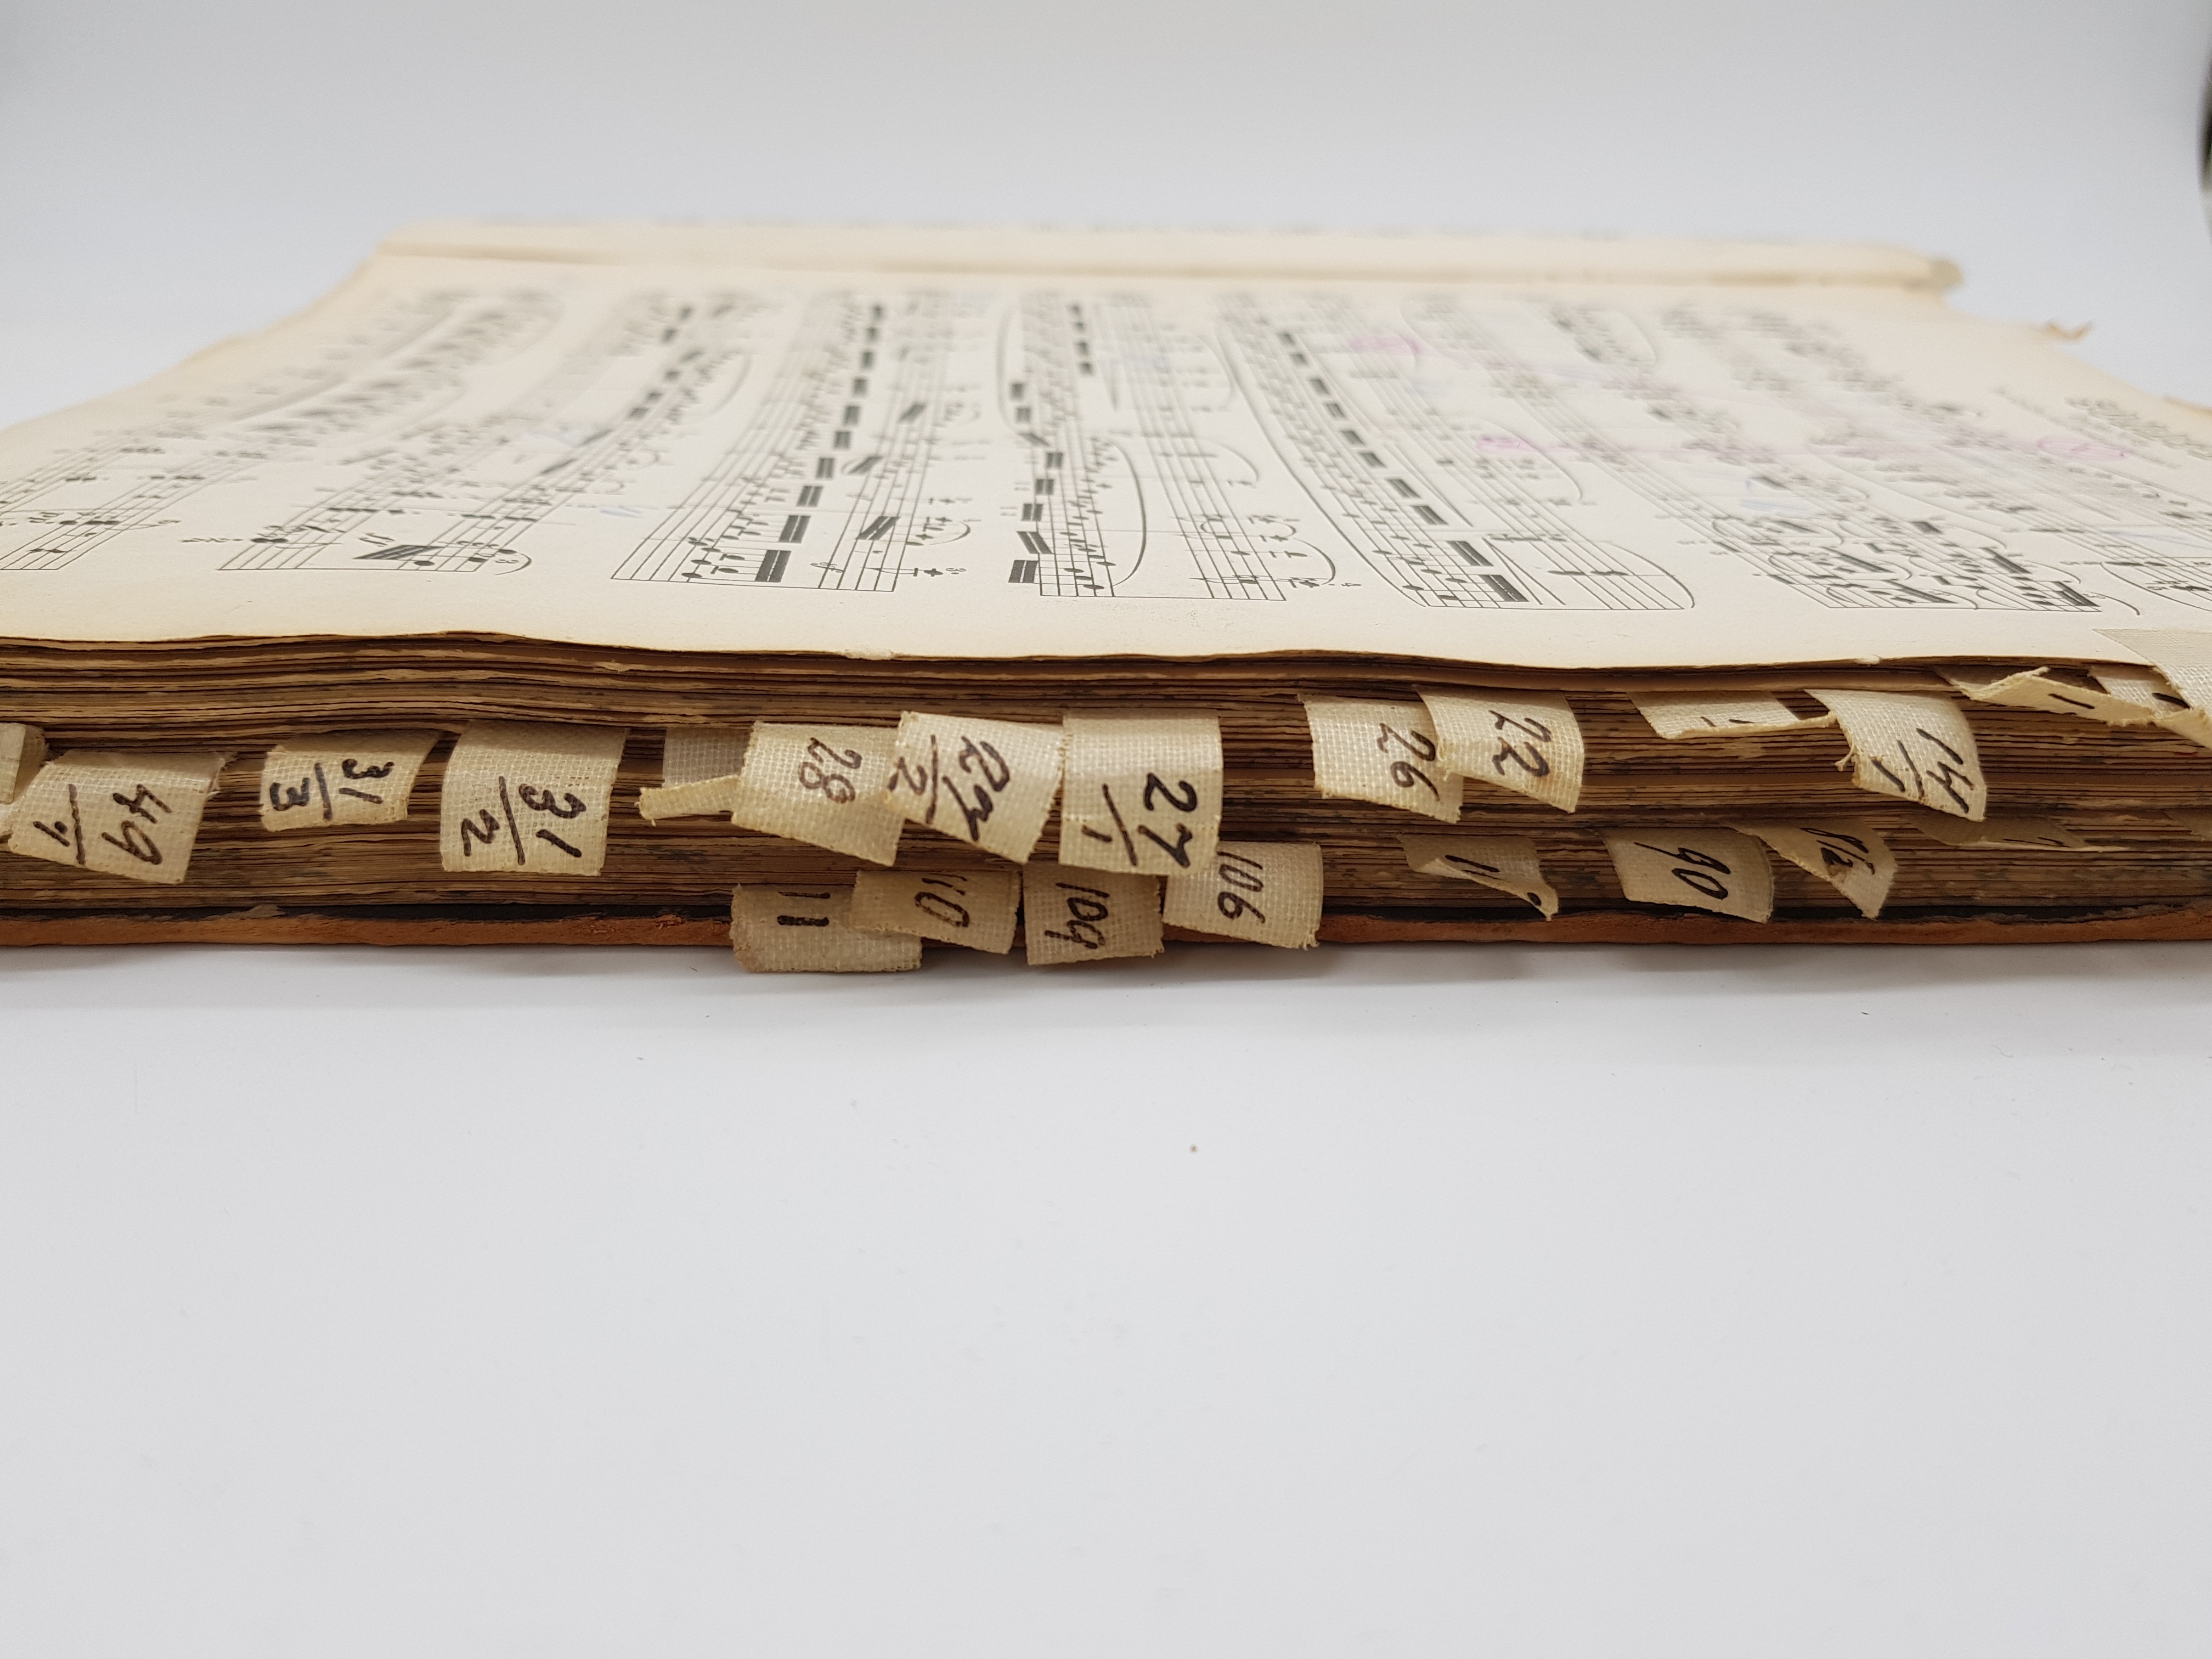 49/1
31/3
31/2
28
27/2
27/1
26
22
14/1
11
110
109
106
90